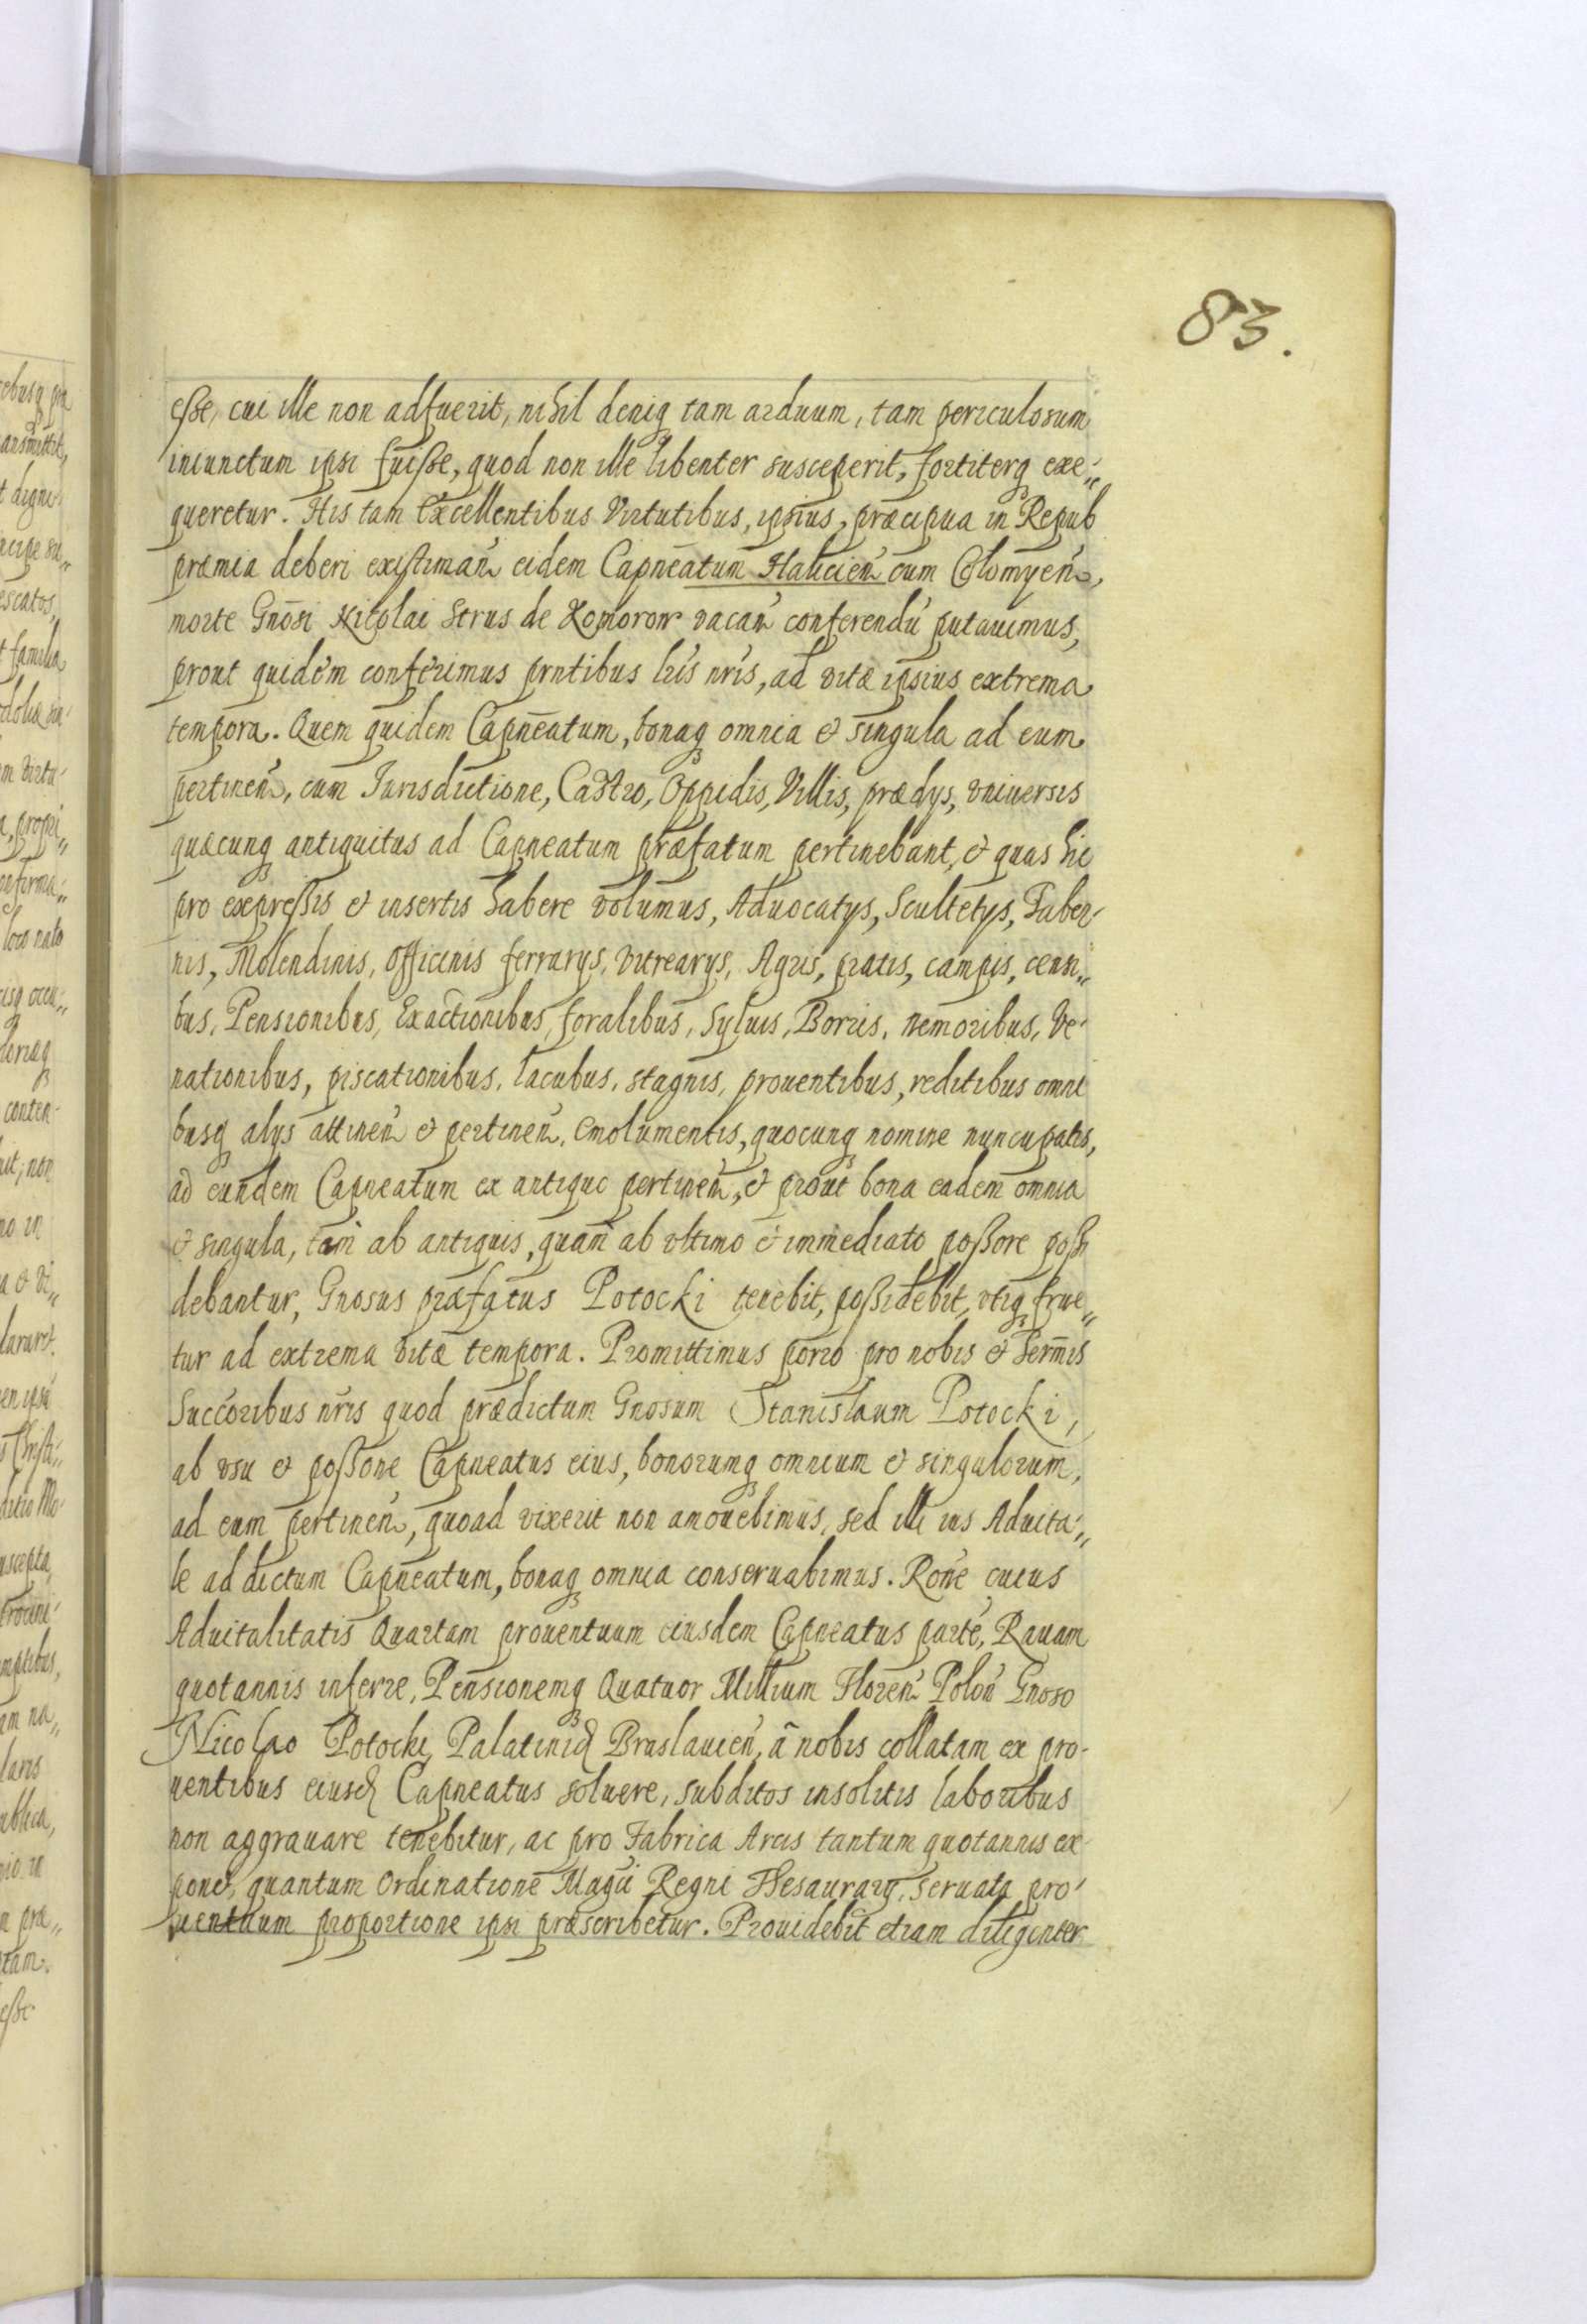 83.
esse, cui ille non adfuerit, nihil deniq tam arduum, tam periculosum
iniunctum ipsi fuisse, quod non ille libenter susceperit, fortiterq exe„
queretur. His tam Excellentibus Virtutibus, ipsius, præcipua in Repub
præmia deberi existiman̄ eidem Capn̄eatum Halicien̄ cum Colomyen̄,
morte Gn̄osi Nicolai Strus de Komorow vacan̄ conferendū putauimus,
prout quidem conferimus prntibus lr̄is nr̄is, ad vitæ ipsius extrema
tempora. Quem quidem Capn̄eatum, bonaq omnia & singula ad eum
pertinen̄, cum Jurisdictione, Castro, Oppidis, Villis, prædys, vniuersis
quæcunq antiquitus ad Capneatum præfatum pertinebant, & quas hic
pro expressis & insertis habere volumus, Aduocatys, Scultetys, Taber-
nis, Molendinis, Officinis ferrarys, vitrearys, Agris, pratis, campis, censi„
bus, Pensionibus, Exactionibus, foralibus, Syluis, Borris, nemoribus, Ve-
nationibus, piscationibus, lacubus, stagnis, prouentibus, reditibus omni
busq alys attinen̄ & pertinen̄, emolumentis, quocunq nomine nuncupatis,
ad eundem Capneatum ex antiquo pertinen̄, & prout bona eadem omnia
& singula, tam ab antiquis, quam ab vltimo & immediato possore possi
debantur, Gnosus præfatus Potocki tenebit, possidebit, vtiq frue„
tur ad extrema vitæ tempora. Promittimus porro pro nobis & Serm̄is
Succoribus nr̄is quod prædictum Gnosum Stanislaum Potocki,
ab vsu & possone Capneatus eius, bonorumq omnium & singulorum,
ad eum pertinen̄, quoad vixerit non amouebimus, sed illi ius Aduita„
le ad dictum Capneatum, bonaq omnia conseruabimus. Ron̄e cuius
Aduitalitatis Quartam prouentuum eiusdem Capneatus partē, Rauam
quotannis inferre, Pensionemq Quatuor Millium Floren̄ Polon̄ Gnoso
Nicolao Potocki, Palatinid Braslauien̄, a nobis collatam ex pro-
uentibus eiusd Capneatus soluere, subditos insolitis laboribus
non aggrauare tenebitur, ac pro Fabrica Arcis tantum quotannis ex
ponet, quantum Ordinatione Magci Regni Thesaurary, seruata pro-
uentuum proportione ipsi præscribetur. Prouidebit etiam diligenter